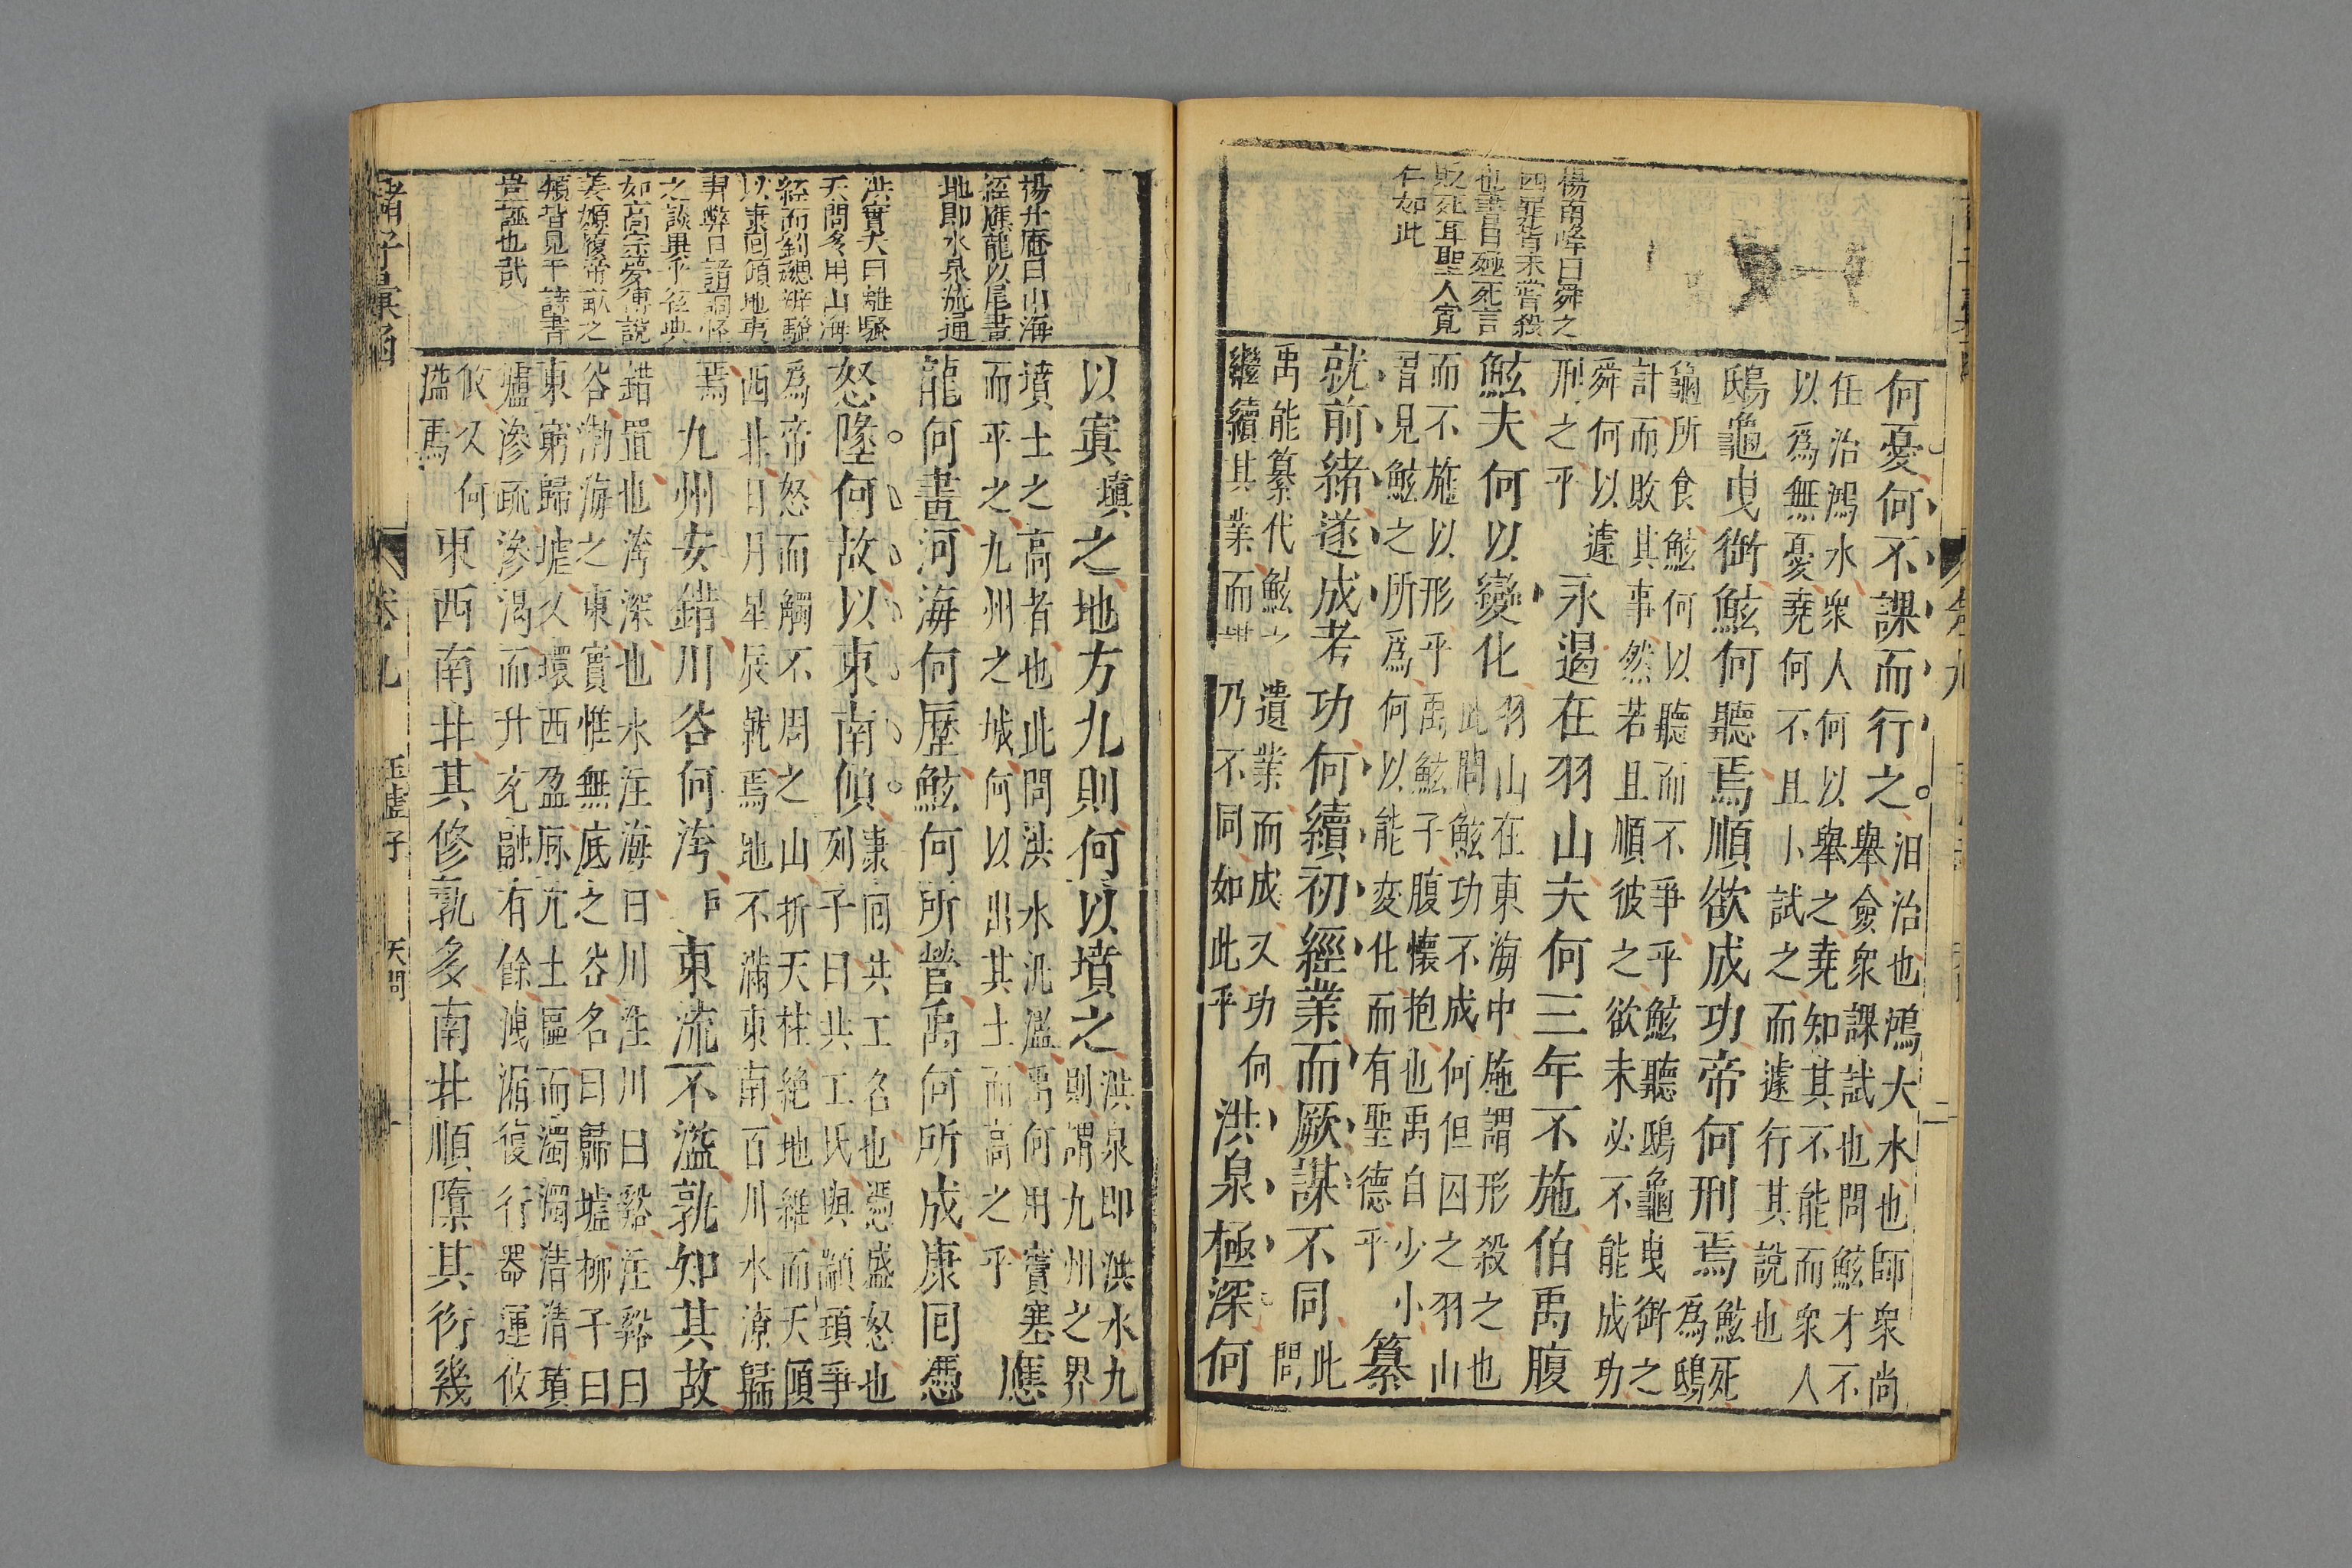 楊南峰曰舜之
四罪皆未嘗殺
也書曰殛死言
貶死耳聖人寬
仁如此
何憂何不課而行之。汩治也鴻大水也師衆尚
舉僉衆課試也問鮌才不
任治鴻水衆人何以舉之堯知其不能而衆人
以爲無憂堯何不且小試之而遽行其說也
鴟龜曳銜鮌何聽焉順欲成功帝何刑焉鮌死
爲鴟
龜所食鮌何以聽而不爭乎鮌聽鴟龜曳銜之
計而敗其事然若且順彼之欲未必不能成功
舜何以遽
刑之乎
永遏在羽山夫何三年不施伯禹腹
鮌夫何以變化羽山在東海中施謂形殺之也
此問鮌功不成何但囚之羽山
而不施以形乎禹鮌子腹懷抱也禹自少小
習見鮌之所爲何以能変化而有聖德乎
纂
就前緒遂成考功何續初經業而厥謀不同此
問
禹能纂代鮌之遺業而成父功何
繼續其業而謀乃不同如此乎
洪泉極深何
楊升庵曰山海
經應龍以尾畫
地即水泉流通
洪實夫曰離騷
天問多用山海
經而劉勰辨騷
以康回傾地夷
羿弊日謂譎怪
之談異乎經典
如高宗夢傅說
姜嫄履帝敏之
類皆見于詩書
豈誣也哉
以寘填之地方九則何以墳之洪泉即洪水九
則謂九州之界
墳土之高者也此問洪水汎濫禹何用寘塞
而平之九州之域何以出其土而高之乎
應
龍何畫河海何歷鮌何所營禹何所成康囘憑
怒墜何故以東南傾。康囘共工名也憑盛怒也
列子曰共工氏與顓頊爭
爲帝怒而觸不周之山折天柱絶地維而天傾
西北日月星辰就焉地不滿東南百川水潦歸
焉
九州安錯川谷何洿戶東流不溢孰知其故
錯置也洿深也水注海曰川注川曰谿注谿曰
谷渤海之東實惟無底之谷名曰歸墟柳子曰
東窮歸墟又環西盈脉冗土區而濁濁清清墳
壚滲疏滲渴而升充融有餘洩漏復行器運攸
攸又何
溢焉
東西南北其修孰多南北順隳其衍幾
諸子彙函
卷九
玉虛子
天問
十